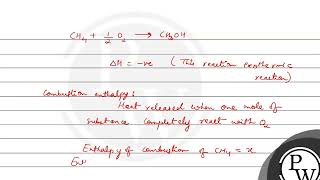 CH₄ + 1/2 O₂ → CH₃OH
ΔH = -ve (This reaction exothermic reaction)
Combustion enthalpy:
Heat released when one mole of
substance completely react with O₂
Enthalpy of combustion of CH₄ = x.
En
PW